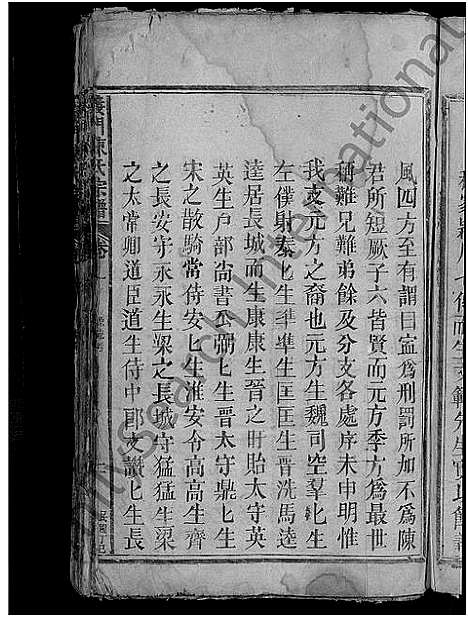 風四方至有謂曰寍爲刑罰所加不爲陳
君所短厥子六皆賢而元方季方爲最世
稱難兄難弟餘及分支各處序未申明惟
我支元方之裔也元方生魏司空羣羣生
左僕射泰泰生準準生匡匡生晋洗馬逵
逵居長城而生康康生晉之盱眙太守英
英生戸部尚書公弼弼生晋太守鼎鼎生
宋之散騎常侍安安生淮安令高高生齊
之長安守永永生梁之長城守猛猛生梁
之太常卿道臣道生侍中郎文讚讚生長
義門陳氏宗譜 卷
familysearch International